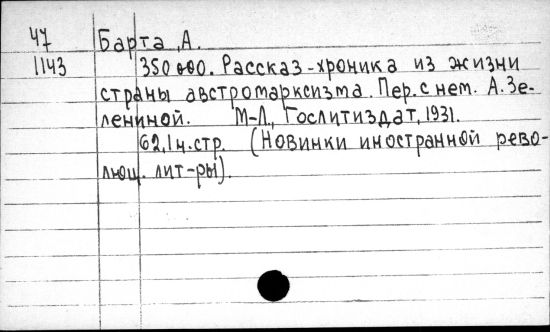 47 Барта, А.
1143 350 000. Рассказ-хроника из жизни
страны австромарксизма. Пер. с нем. А. Зе-
лениной. М-Л., Гослитиздат, 1931.
62, 1 ч. стр. (Новинки иностранной рево-
люц. лит-ры).